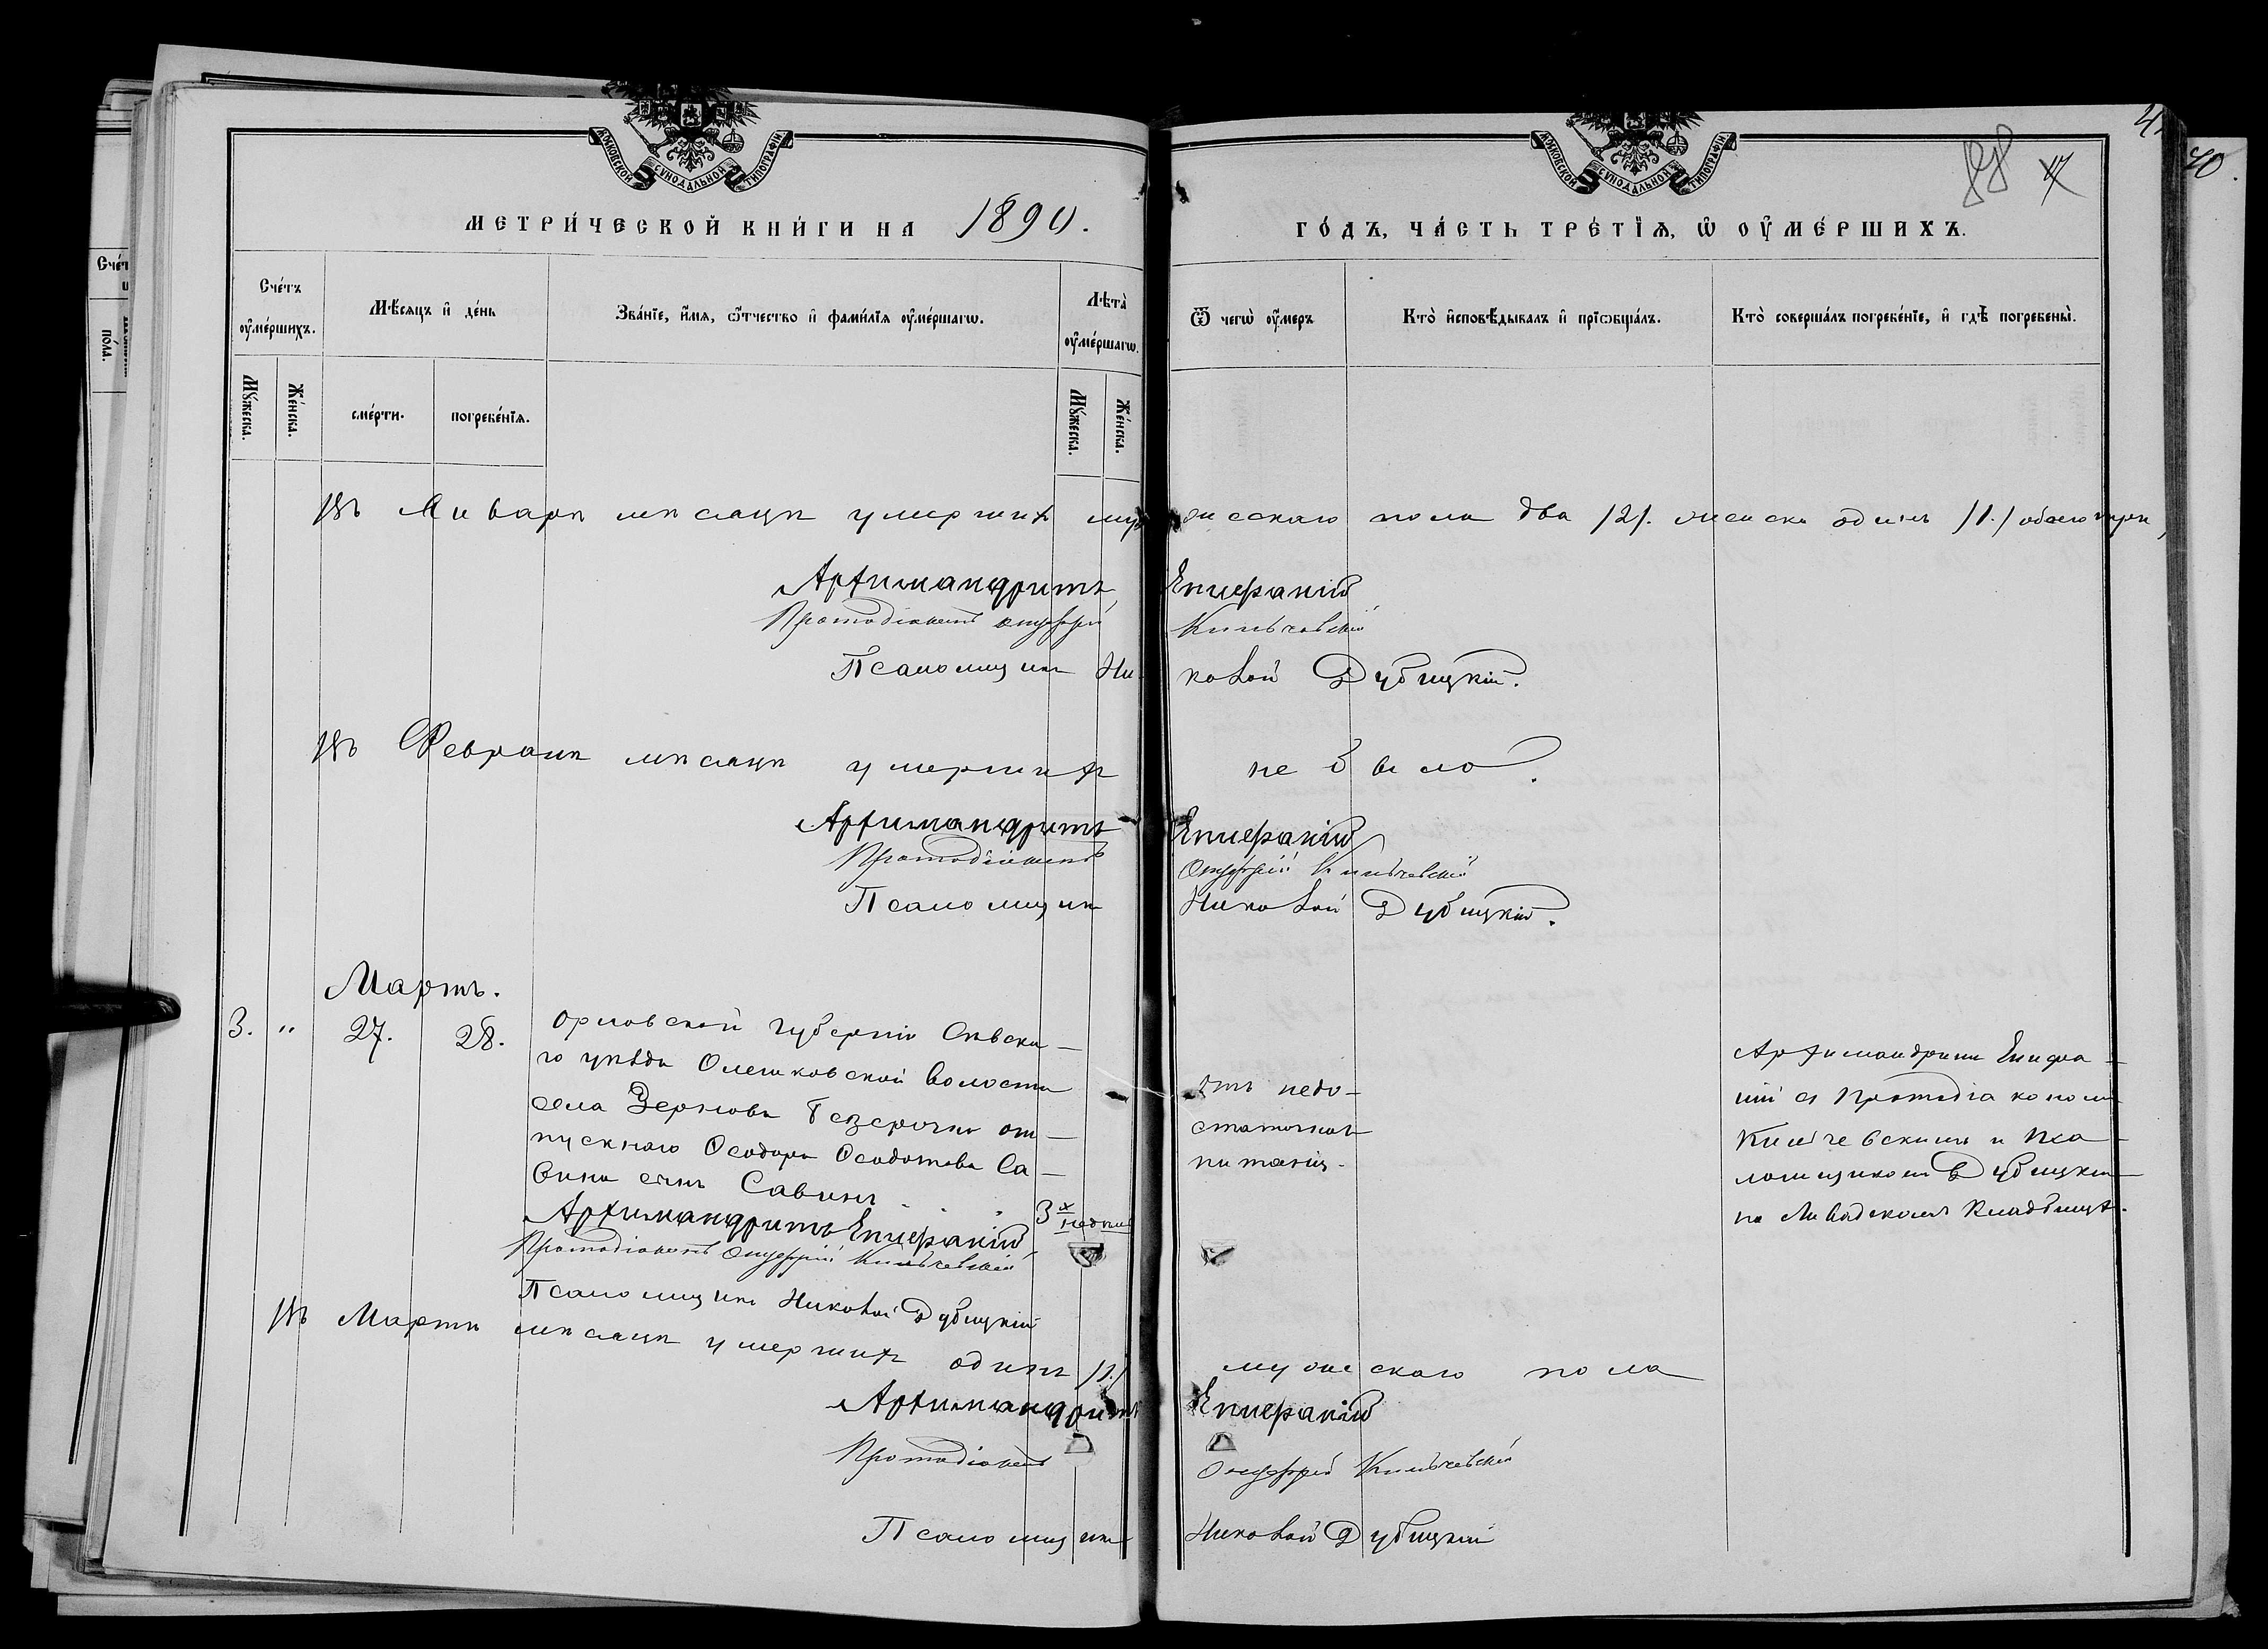 МОСКОВСКОЙ СѴНОДАЛЬНОЙ ТИПОГРАФІИ
МЕТРИ́ЧЕСКОЙ КНИ́ГИ НА 1890.
Сче́тъ ᲂу҆ме́ршихъ.
Мѣ́сяцъ и҆ де́нь
Зва́нїе, и҆́мя, ѻ҆́тчество и҆ фами́лїя ᲂу҆ме́ршагѡ.
Лѣ́та ᲂу҆ме́ршагѡ.
Мꙋ́жеска.
Же́нска.
сме́рти.
погребе́нїя.
Мꙋ́жеска.
Же́нска.
МОСКОВСКОЙ СѴНОДАЛЬНОЙ ТИПОГРАФІИ
88
ГО́ДЪ, ЧА́СТЬ ТРЕ́ТЇѦ, Ѡ҆ ОУ҆МЕ́РШИХЪ.
Ѿ чегѡ̀ ᲂу҆́меръ
Кто̀ и҆сповѣ́дывалъ и҆ прїѡбща́лъ.
Кто̀ соверша́лъ погребе́нїе, и҆ гдѣ̀ погребены̀.
40.
Въ Январѣ мѣсяцѣ умершихъ мужескаго пола два /2/. женска одинъ /1./ обоего три,
Архимандритъ Епифаній
Протодіаконъ Онуфрій Кильчевскій
Псаломщикъ Николай Дубицкій.
Въ Февралѣ мѣсяцѣ умершихъ не было.
Архимандритъ Епифаній
Протодіаконъ Онуфрій Кильчевскій
Псаломщикъ Николай Дубицкій.
Мартъ.
3. " 27. 28.
Орловской губерніи Сѣвска-
го уѣзда Олешковской волости
села Зернова безсрочно от-
пускнаго Ѳеодора Ѳеодотова Са-
вина сынъ Савинъ
3х недѣль
Отъ недо-
статочнаго
питанія.
Архимандритъ Епифа-
ній съ Протодіакономъ
Кильчевскимъ и Пса-
ломщикомъ Дубицкимъ
на Ливадскомъ кладбищѣ.
Архимандритъ Епифаній
Протодіаконъ Онуфрій Кильчевскій
Псаломщикъ Николай Дубицкій
Въ Мартѣ мѣсяцѣ умершихъ одинъ /1./ мужескаго пола
Архимандритъ Епифаній
Протодіаконъ Онуфрій Кильчевскій
Псаломщикъ Николай Дубицкій